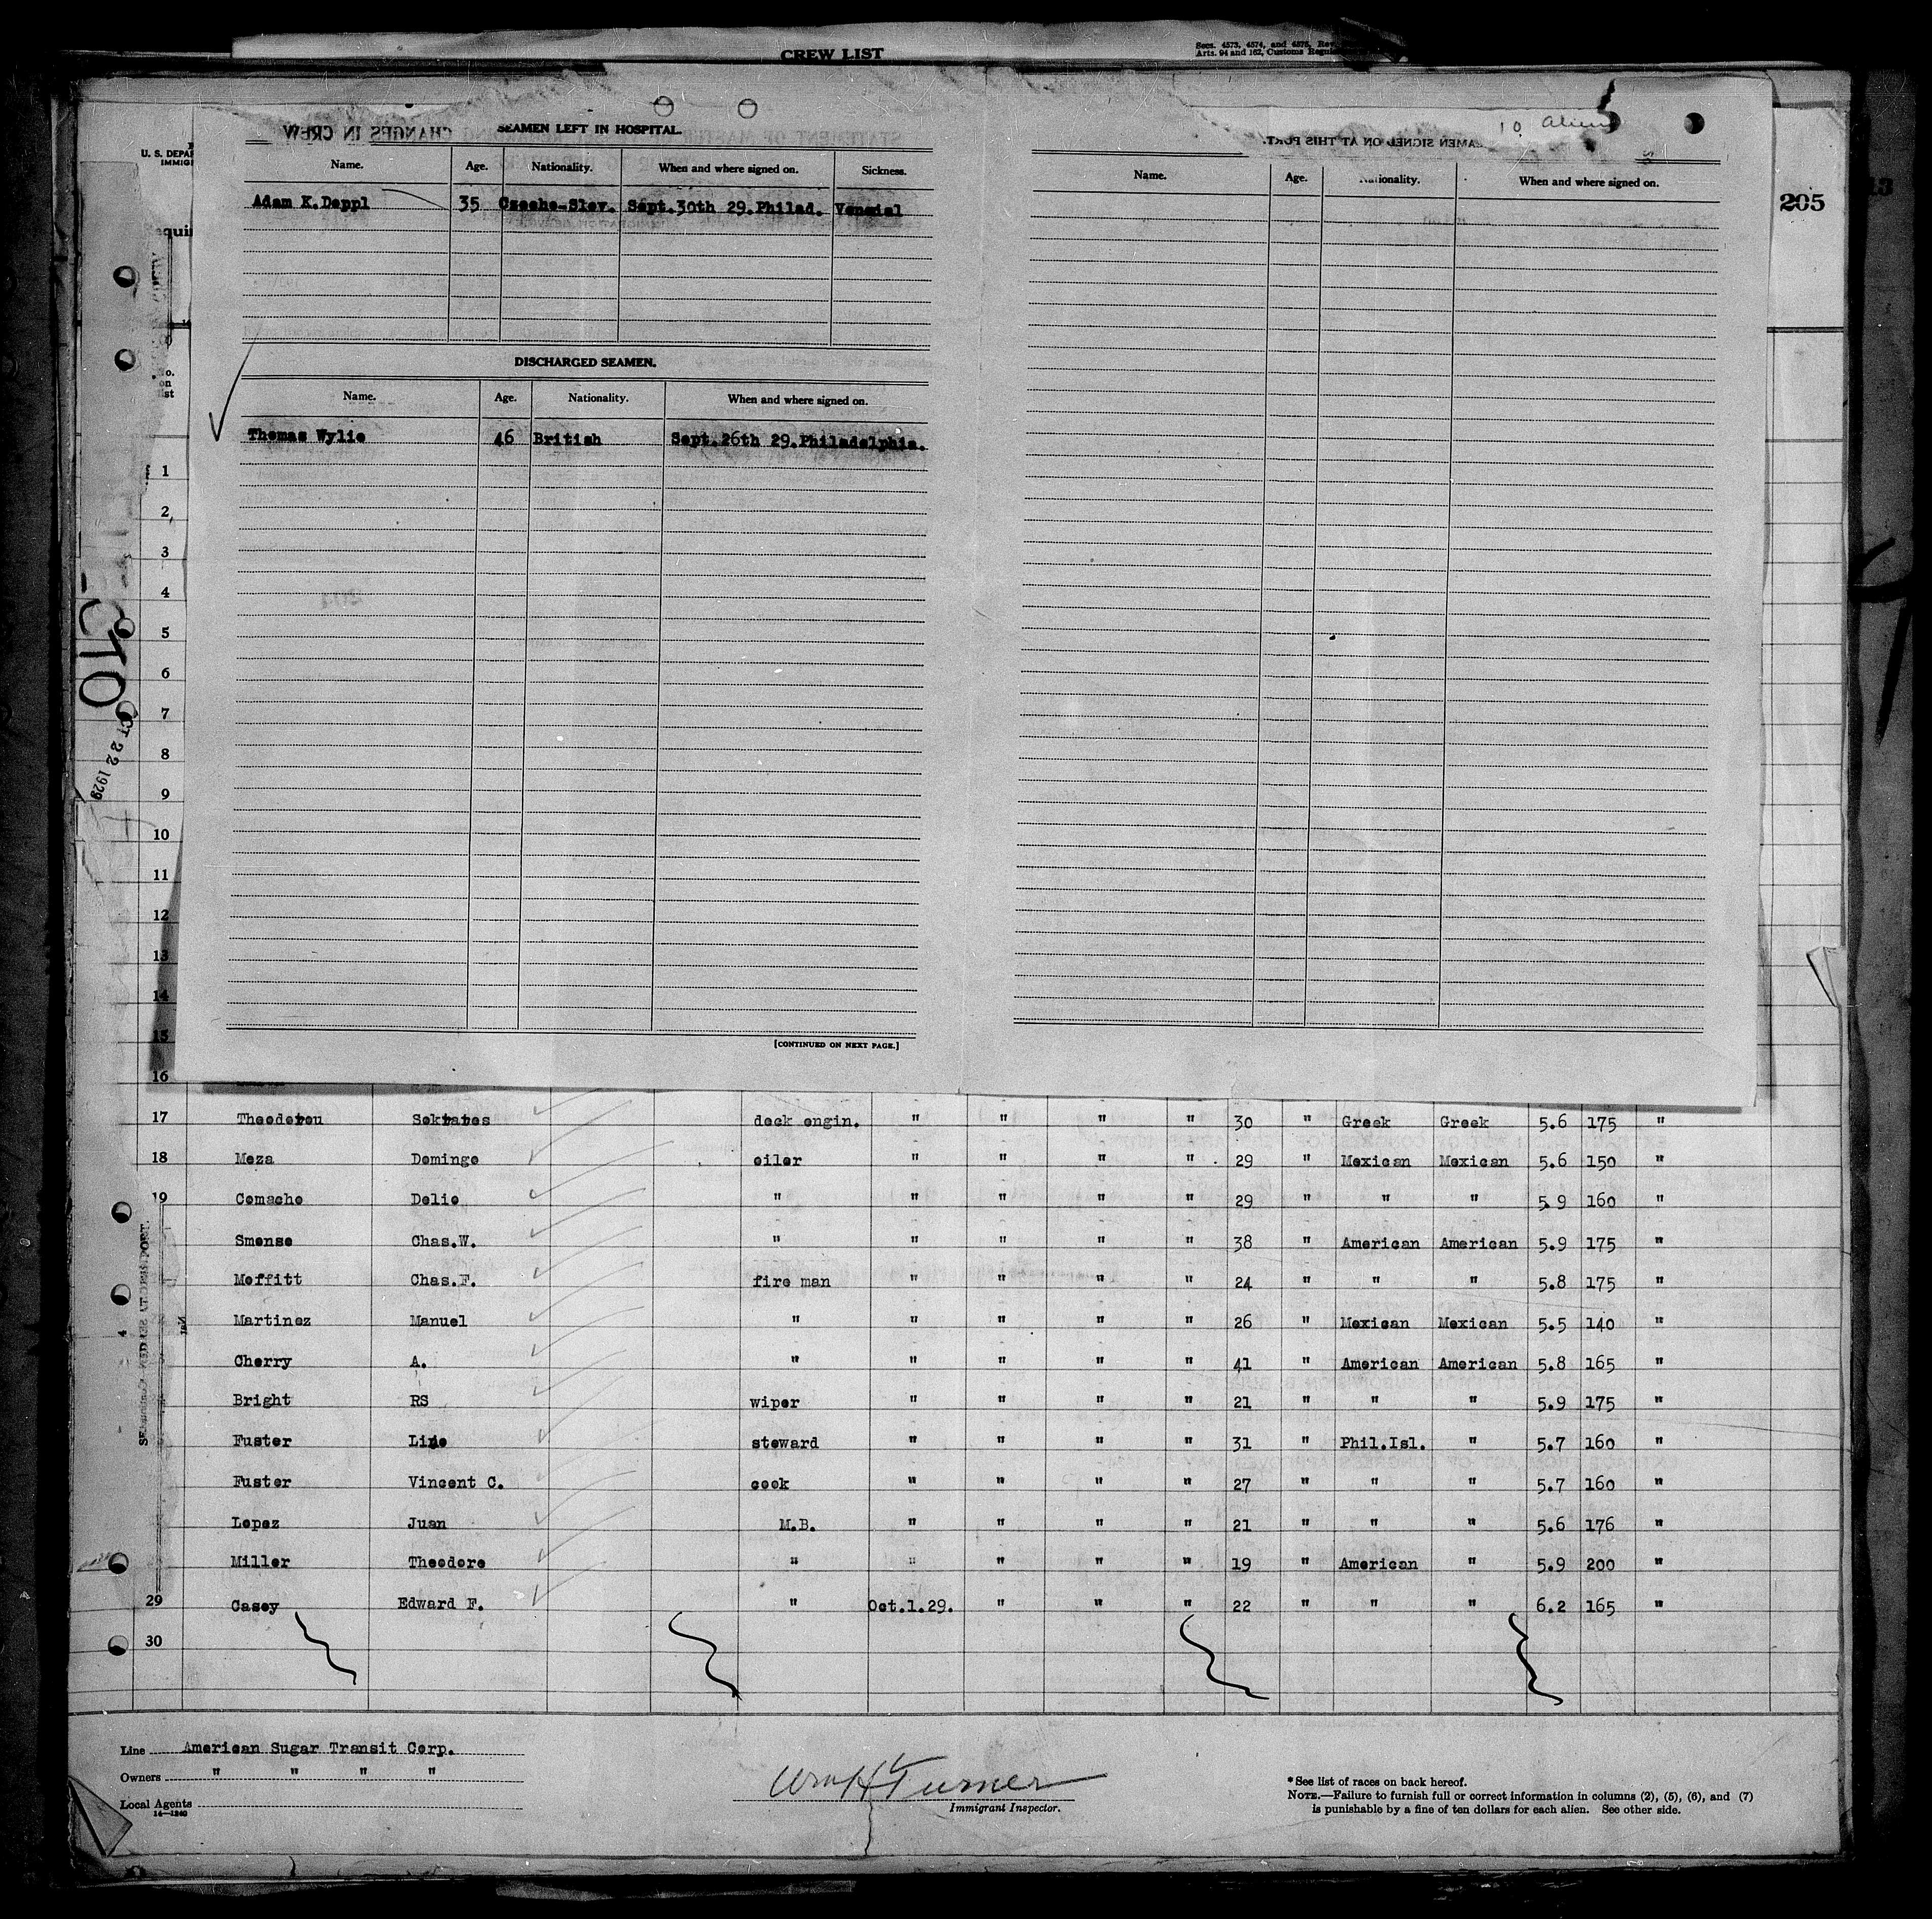 CREW LIST
Secs. 4573, 4574, and 4575, Rev.
Arts. 94 and 162, Customs Regul
10 Aliens
SEAMEN LEFT IN HOSPITAL.
CHANGES IN CREW
SEAMEN SIGNED ON AT THIS PORT.
U. S. DEPAR
IMMIG
Name. Age. Nationality. When and where signed on. Sickness.
Name. Age. Nationality. When and where signed on.
Adam K.Deppl 35 Czecho-Slev. Sept.30th 29.Philad. Venerial
205
13
DISCHARGED SEAMEN.
Name. Age. Nationality. When and where signed on.
Thomas Wylie 46 British Sept.26th 29.Philadelphia.
No.
on
list
1
2
3
4
5
6
7
8
9
10
11
12
13
14
15
16
OCT 22 1929
[CONTINUED ON NEXT PAGE.]
17 Theodorou Sokrates deck engin. " " " " 30 " Greek Greek 5.6 175 "
18 Meza Domingo oiler " " " " 29 " Mexican Mexican 5.6 150 "
19 Comacho Delio " " " " " 29 " " " 5.9 160 "
Smense Chas.W. " " " " " 38 " American American 5.9 175 "
Moffitt Chas.F. fire man " " " " 24 " " " 5.8 175 "
Martinez Manuel " " " " " 26 " Mexican Mexican 5.5 140 "
Cherry A. " " " " " 41 " American American 5.8 165 "
Bright RS wiper " " " " 21 " " " 5.9 175 "
Fuster Lino steward " " " " 31 " Phil.Isl. " 5.7 160 "
Fuster Vincent C. cook " " " " 27 " " " 5.7 160 "
Lopez Juan M.B. " " " " 21 " " " 5.6 176 "
Miller Theodore " " " " " 19 " American " 5.9 200 "
29 Casey Edward F. " Oct.1.29. " " " 22 " " " 6.2 165 "
30
Line American Sugar Transit Corp.
Owners " " " "
Local Agents
14—1240
Wm H Turner
Immigrant Inspector.
* See list of races on back hereof.
NOTE.—Failure to furnish full or correct information in columns (2), (5), (6), and (7)
is punishable by a fine of ten dollars for each alien. See other side.